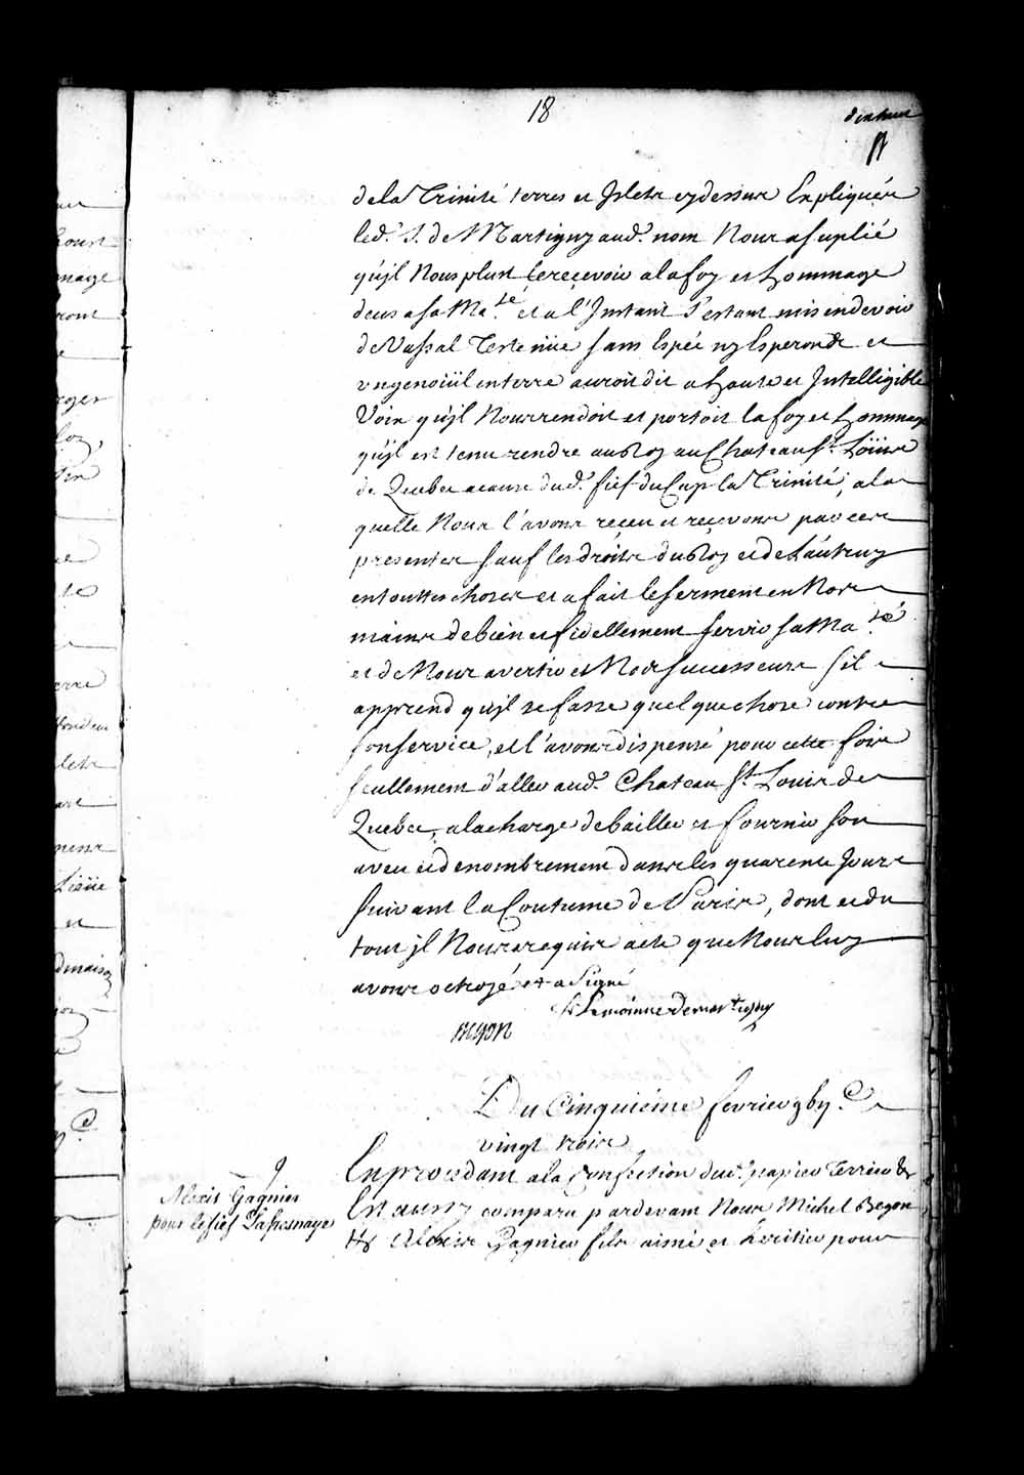 18
dixhuit
de la Trinité terres et Islets cy dessus Expliquées
led.t S.r de Martigny aud.t nom Nous a suplié
qu'jl Nous plust le reçevoir a la foy et hommage
deus a sa Ma.té et a l'Instant s'estant mis en devoir
de Vassal Teste nüe sans Espée ny Esperons & et
un genoüil en terre auroit dit a haute et Intelligible
Voix qu'jl Nous rendoit et portoit la foy et hommage
qu'jl est tenu rendre au Roy au Chateau S.t Loüis
de Quebec a cause dud.t fief du Cap la Trinité, a la
quelle Nous l'avons reçeu et reçevons par ces
presentes sauf les droits du Roy et de L'autruy
en touttes choses et a fait le serment en Nos
mains de bien et fidellement servir sa Ma.té
et de Nous avertir et Nos successeurs s'il
apprend qu'jl se fasse quelque chose contre
son service, et l'avons dispensé pour cette fois
seullement d'aller aud.t Chateau S.t Louis de
Quebec, a la charge de bailler et fournir son
aveu et denombrement dans les quarente Jours
suivant la Coutume de Paris, dont et du
tout jl Nous a requis acte que Nous luy
avons octroyé et a Signé
Le moinne de martigny
Begon
Du Cinquieme fevrier gbij.C
vingt trois
En procedant a la Confection dud.t papier Terrier &
Est aussy comparu pardevant Nous Michel Begon
&c Alexis Gagnier fils aimé et heritier pour
9
Alexis Gagnier
pour le fief Lafresnaye